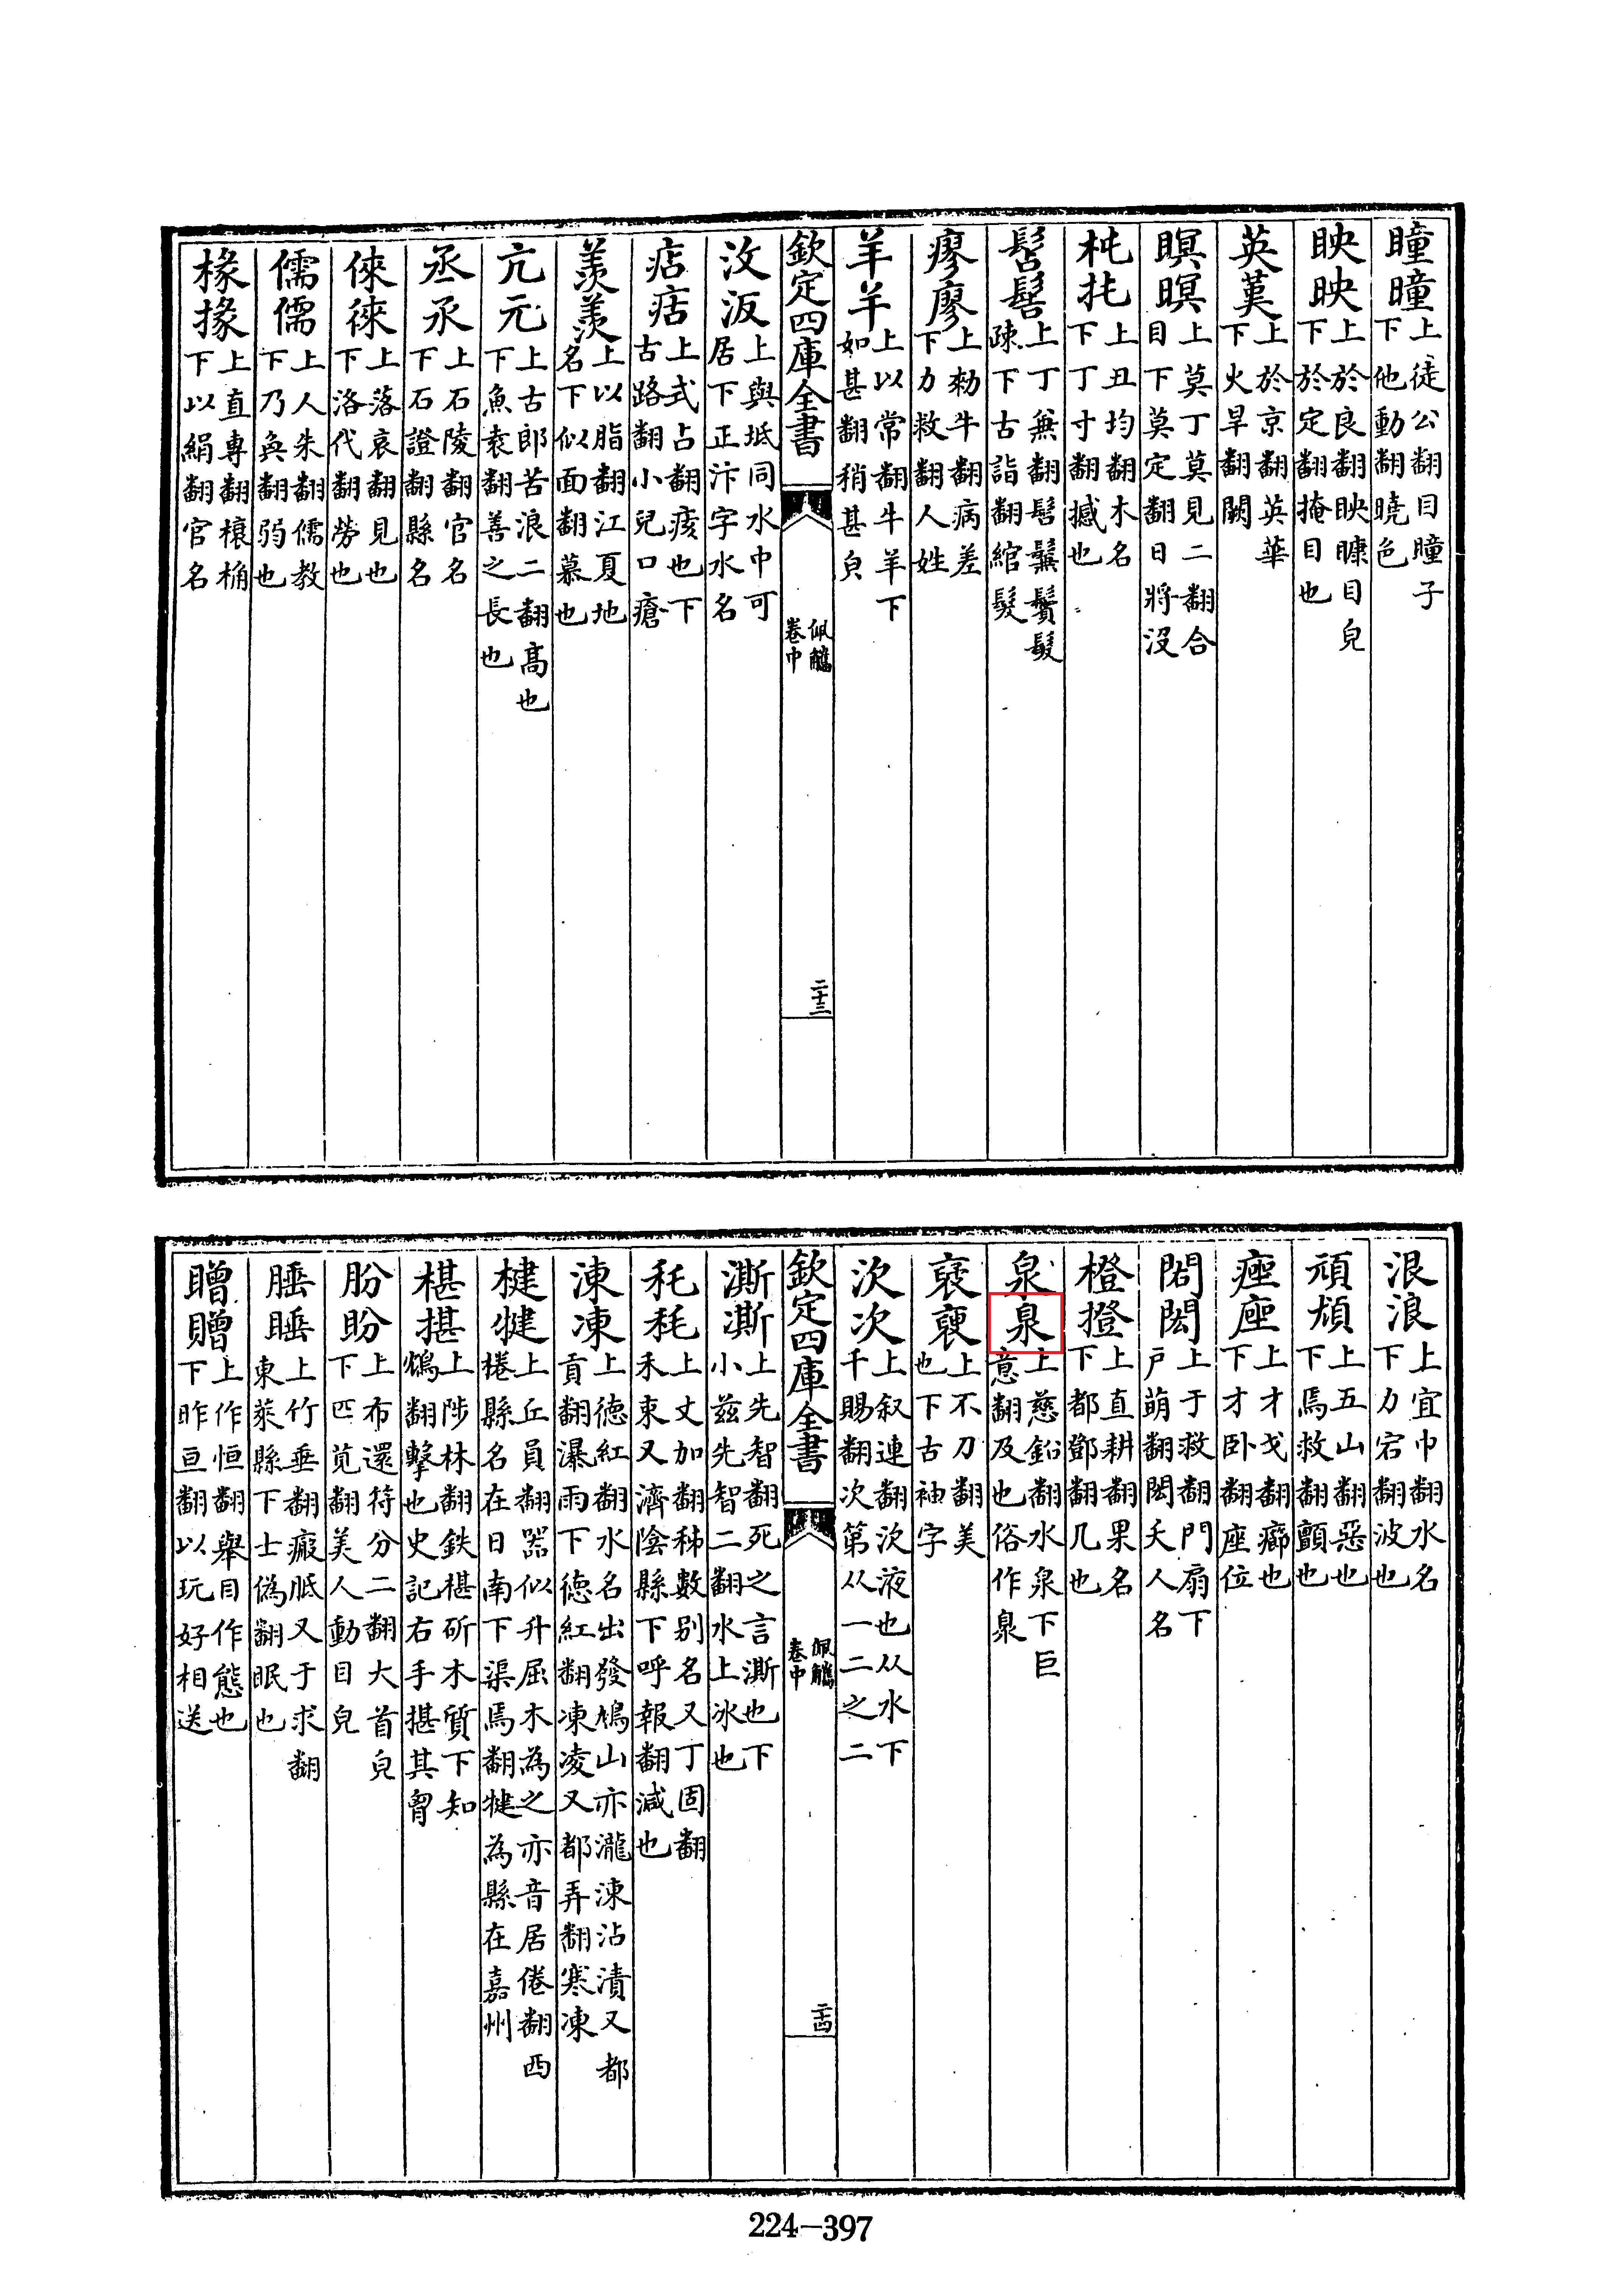 瞳曈上徒公翻目瞳子下他動翻曉色
眏映上於良翻眏䁳目皃下於定翻掩目也
英䓟上於京翻英華下火旱翻闕
瞑暝上莫丁莫見二翻合目下莫定翻日將没
杶扽上丑均翻木名下丁寸翻撼也
髫髻上丁無翻髫鬢髮疎下古詣翻綰髮
瘳廖上勑牛翻病差下力救翻人姓
羊上以常翻牛羊下如甚翻稍甚皃
欽定四庫全書
佩觿
卷中
二十三
汶汳上與坻同水中可居下正汴字水名
痁痼上式占翻㾐也下古路翻小兒口瘡
羡羨上以脂翻江夏地名下似面翻慕也
亢元上古郎苦浪二翻髙也下魚袁翻善之長也
丞氶上石陵翻官名下石證翻縣名
倈徠上落哀翻見也下洛代翻勞也
儒㦺上人朱翻儒教下乃奐翻弱也
椽掾上直專翻榱桷下以絹翻官名
泿浪上宜巾翻水名下力宕翻波也
頑頄上五山翻惡也下焉救翻顫也
痤座上才戈翻癤也下才卧翻座位
閎上于救翻門扇下戸萌翻閎夭人名
橙撜上直耕翻果名下都鄧翻几也
泉臮上慈鉛翻水泉下巨意翻及也俗作臮
褒褏上不刀翻美也下古袖字
㳄次上叙連翻㳄液也从水下千賜翻次第从一二之二
欽定四庫全書
佩觿
卷中
二十四
澌凘上先智翻死之言澌也下小兹先智二翻水上冰也
秅耗上丈加翻秭數别名又丁固翻禾束又濟隂縣下呼報翻減也
涷凍上徳紅翻水名出發鳩山亦瀧涷沾漬又都貢翻瀑雨下徳紅翻凍凌又都弄翻寒凍
楗犍上丘員翻器似升屈木為之亦音居倦翻西棬縣名在日南下渠焉翻犍為縣在嘉州
椹揕上陟林翻鉄椹斫木質下知鴆翻擊也史記右手揕其胷
肦盼上布還符分二翻大首皃下匹莧翻美人動目皃
腄睡上竹垂翻瘢胝又于求翻東萊縣下士偽翻眠也
䁬贈上作恒翻舉目作態也下昨亘翻以玩好相送
224—397